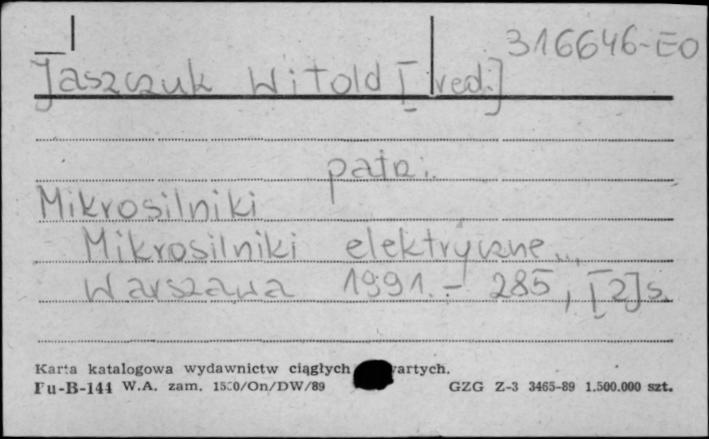 316646-EO
Jaszczuk Witold [red.]
patrz:
Mikrosilniki
Mikrosilniki elektryczne...
Warszawa 1991. - 285, [2] s.
Karta katalogowa wydawnictw ciągłych
Pu-B-144 W.A. zam. /On/DW/89 GZG Z-3 3465-89 1.500.000 szt.